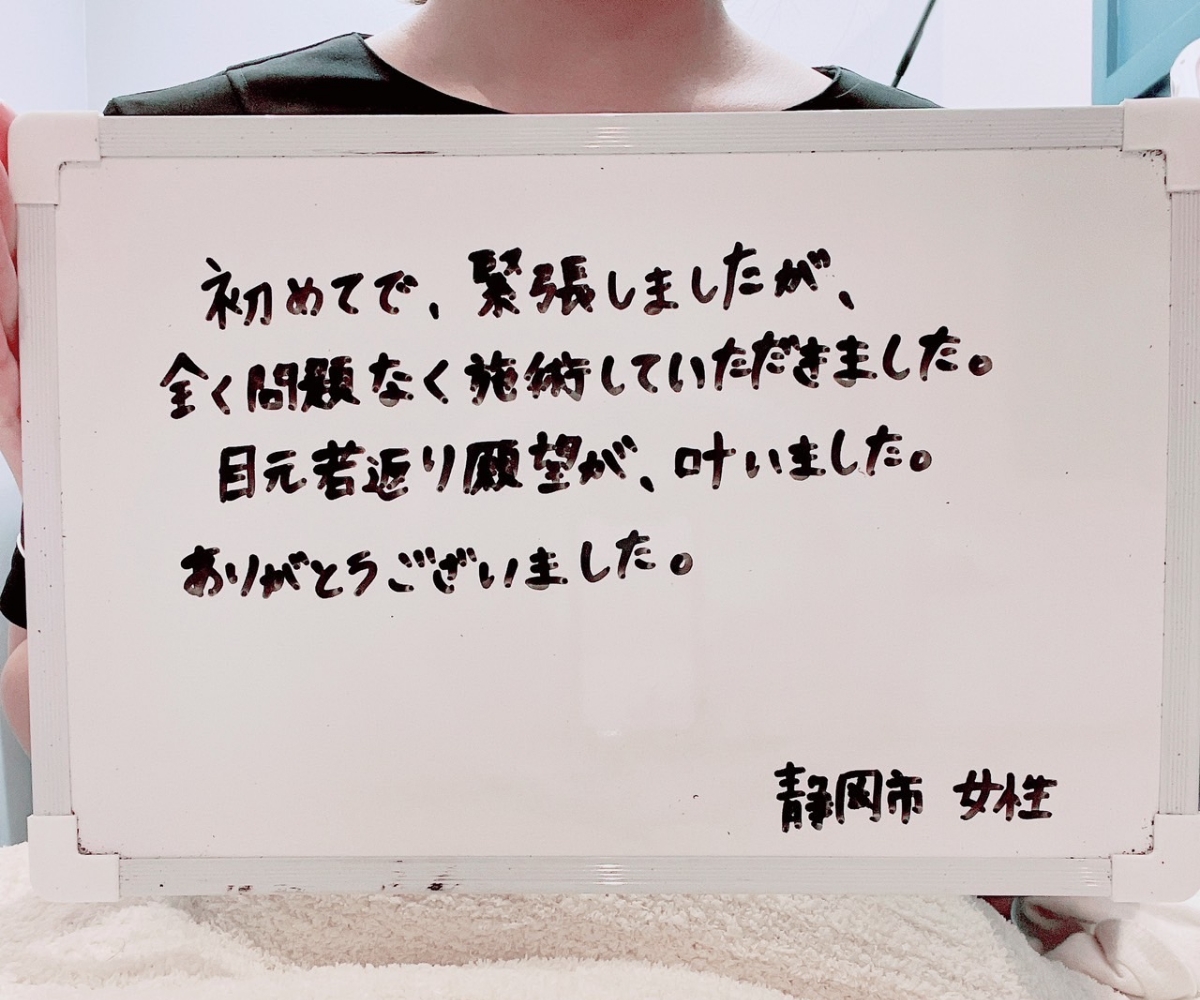 初めてで、緊張しましたが、
全く問題なく施術していただきました。
目元若返り願望が、叶いました。
ありがとうございました。
静岡市 女性